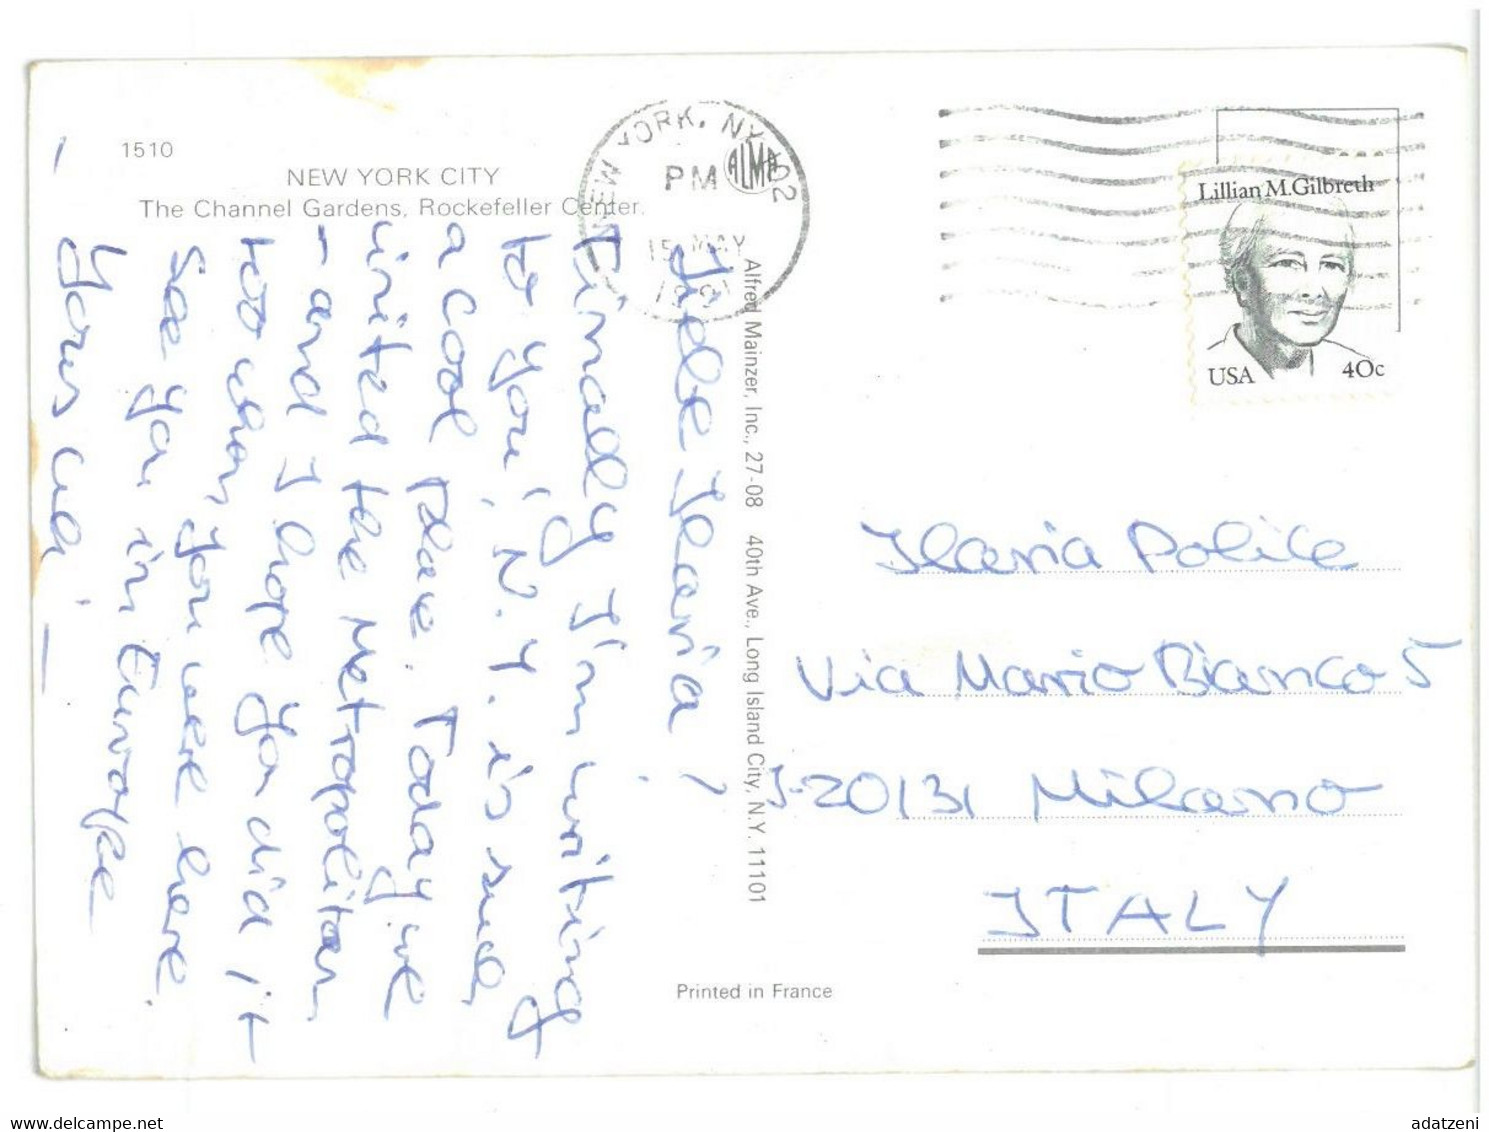 1510
NEW YORK CITY
The Channel Gardens, Rockefeller Center.
NEW YORK, NY
PM
ALMA
15 MAY
Lillian M. Gilbreth
USA
40c
Alfred Mainzer, Inc., 27-08 40th Ave., Long Island City, N.Y. 11101
Liebe Ilaria!
Finally I'm writing
to you, N.Y. is such
a cool place. Today we
visited the Metropolitan
- and I hope you did it
too when you were here.
See you in Europe
Yours
Ilaria Police
Via Mario Bianco 5
I-20131 Milano
ITALY
Printed in France
www.delcampe.net
adatzeni